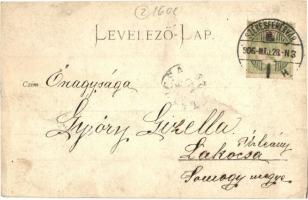 (2 160L
LEVELEZŐ-LAP.
SZÉKESFEHÉRVÁR
906 MÁJ 28 N3
Czim:
Őnagysága
Győry Gizella
Lakocsa
Somogy megye